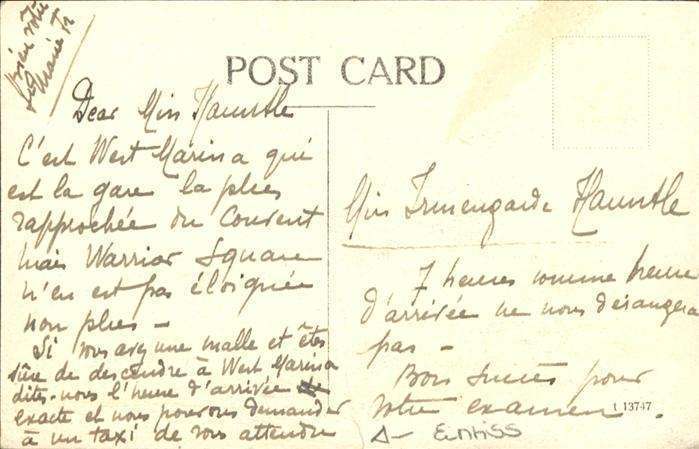 POST CARD
Dear Miss Hauntle
C'est West Marina qui
est la gare la plus
rapprochée du Couvent
mais Warrior Square
n'en est pas éloignée
non plus -
Si vous avez une malle et êtes
sûre de descendre à West Marina
dites-nous l'heure d'arrivée
exacte et nous pouvons demander
à un taxi de vous attendre
Miss Irmengarde Hauntle
7 heures comme heure
d'arrivée ne nous dérangera
pas -
Bon succès pour
votre examen.
t 13747